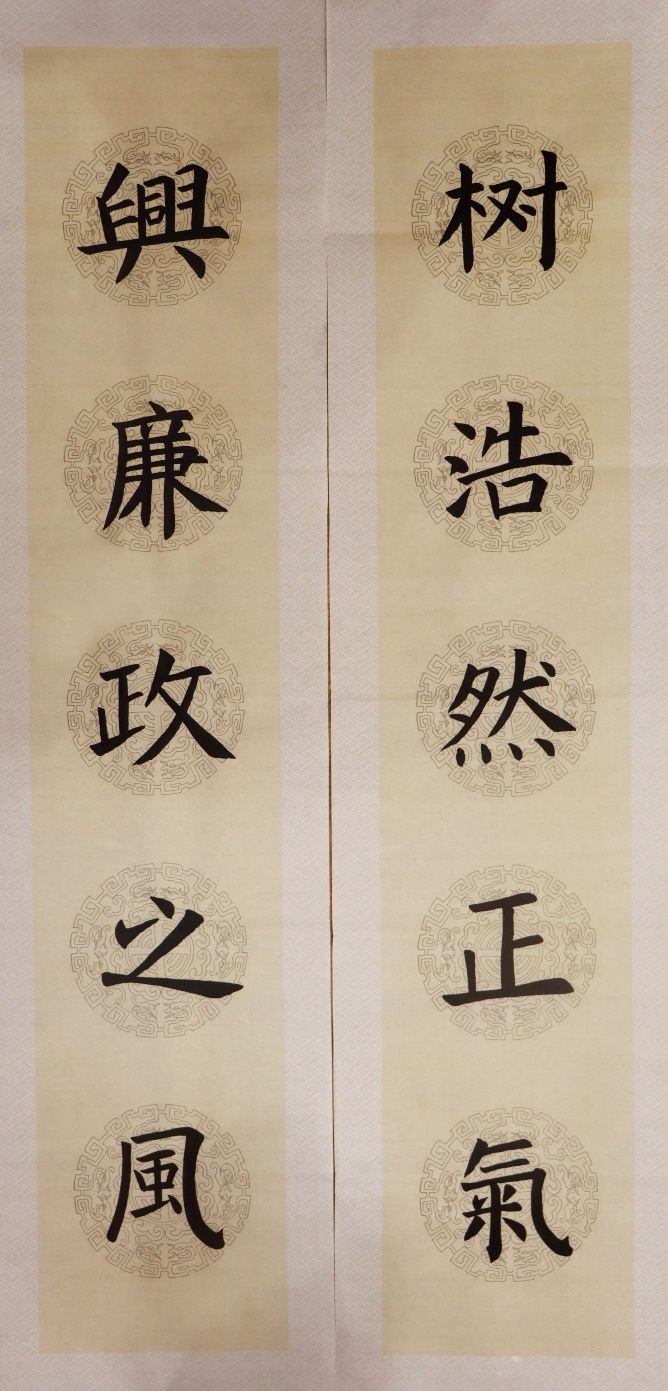 树浩然正氣
興廉政之風